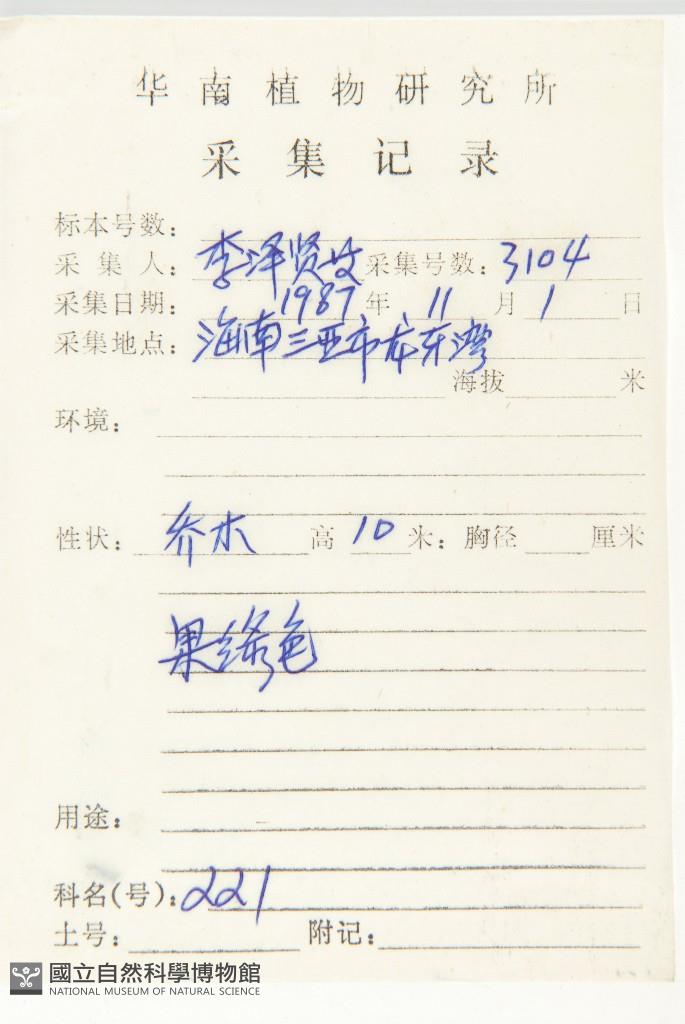 华南植物研究所
采集记录
标本号数：
采集人：李泽贤等 采集号数：3104
采集日期：1987年11月1日
采集地点：海南三亚市龙东湾
海拔 米
环境：
性状：乔木 高10米；胸径 厘米
果绿色
用途：
科名(号)：221
土号： 附记：
國立自然科學博物館
NATIONAL MUSEUM OF NATURAL SCIENCE